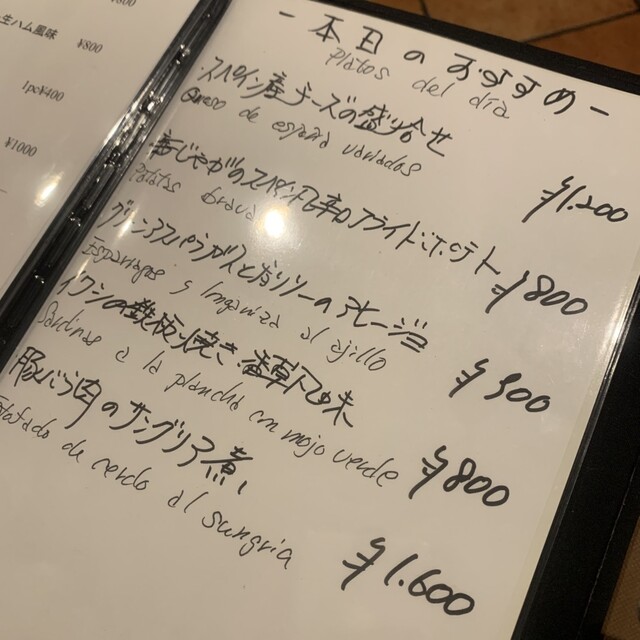 ¥800
生ハム風味
¥800
1pc¥400
¥1000
-本日のおすすめ-
Platos del día
スペイン産チーズの盛り合せ
Queso de españa variados
¥1.200
新じゃがのスペイン風辛口フライドポテト
Patatas brava
¥800
グリーンアスパラガスとチョリソーのアヒージョ
Esparragos y longaniza al ajillo
¥900
イワシの鉄板焼き 香草風味
Sardinas a la plancha con mojo verde
¥800
豚バラ肉のサングリア煮
Estofado de cerdo al sangria
¥1.600